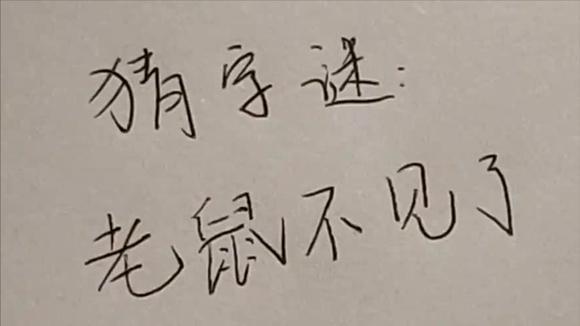 猜字谜:
老鼠不见了